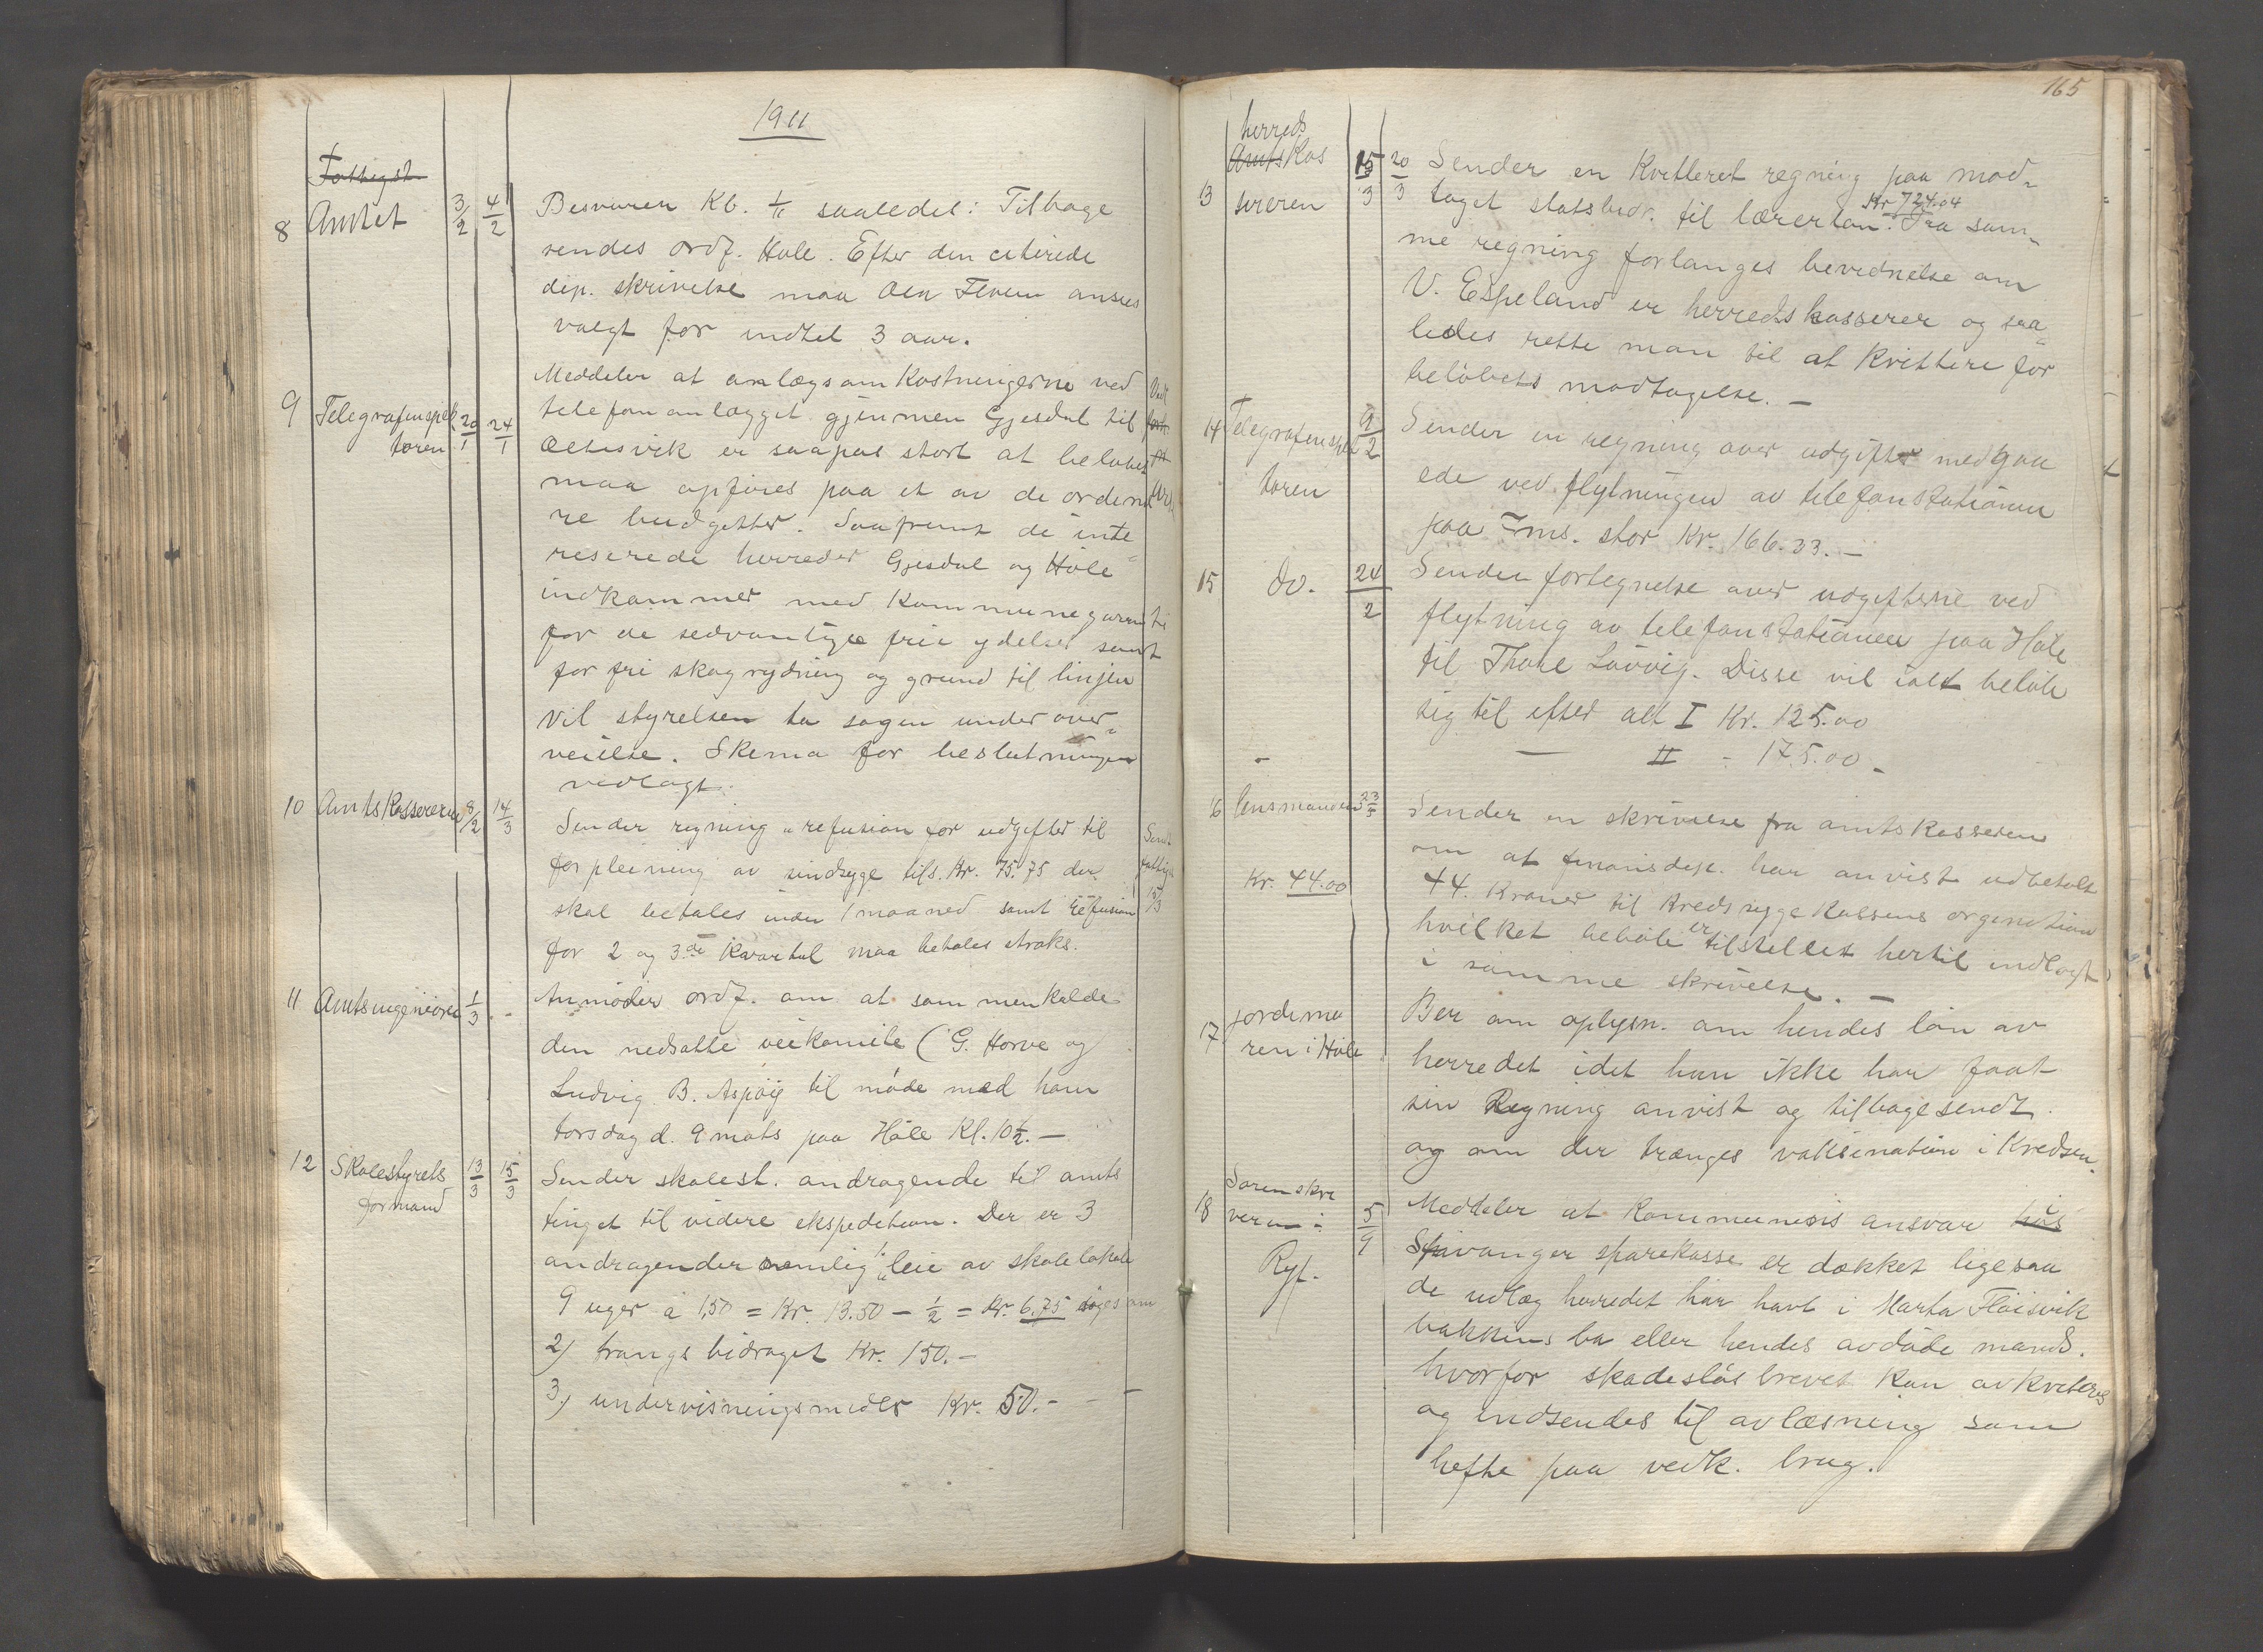 1911
8 Amtet 3/2 4/2 Besvarer Kb. 1/11 saaledes: Tilbage
sendes ordf. Hole. Efter den citerede
dep. skrivelse maa Flem anses
valgt for indtil 3 aar.
9 Telegrafinspek 20/1 24/1 Meddeler at anlægsomkostningerne ved
toren telefonanlægget gjennem Gjesdal til
Øltesvik er saapas stort at beløbet
maa opføres paa et av de ordenæ
re budgetter. Saafremt de inte
reserede herreder Gjesdal og Høle
indkommer med Kommunegaranti
for de sedvanlige frie ydelser samt
for fri skogrydning og grund til linjen
vil styrelsen ta sagen under over
veielse. Skema for beslutningen
vedlagt.
10 Amtskassereren 8/2 14/3 Sender regning refusion for udgifter til
forpleining av sindsyge tils. Kr. 75.75 der
skal betales inden 1 maaned samt refusion
for 2 og 3de Kvartal maa betales straks.
11 Amtsingeniøren 1/3 - Anmoder ordf. om at sammenkalde
den nedsatte veikomite (G. Horve og
Ludvig B. Aspøig til møde med ham
torsdag d. 9 mats paa Høle Kl. 10 1/2. —
12 Skolestyrets 13/3 15/3 Sender skolest. andragende til amts
formand tinget til videre ekspedition. Der er 3
andragender nemlig 1. leie av skolelokale
9 uger à 1,50 = Kr. 13.50 - 1/2 = Kr. 6.75 søges om
2) trangsbidraget Kr. 150.-
3) undervisningsmidler Kr. 50.-
165
herreds
Amts Kas 15/3 20/3 Sender en Kvitteret regning paa mod-
13 sereren taget statsbidr. til lærerløn. Kr 724.04 Paa sam-
me regning forlanges bevidnelse om
V. Espeland er herredskasserer og saa
ledes rette man til at Kvittere for
beløbets modtagelse. —
14 Telegrafinspek 9/2 Sender en regning over udgifter medgaa
toren ede ved flytningen av telefonstationen
paa Ims. stor Kr. 166.33. —
15 do. 24/2 Sender fortegnelse over udgifterne ved
flytning av telefonstationen paa Høle
til Thore Løvvig. Disse vil ialt beløbe
sig til efter alt I Kr. 125.00
— II - 175.00 -
16 lensmanden 23/3 Sender en skrivelse fra amtskasseren
om at finansdep. har anvist udbetalt
Kr. 44.00 44. Kroner til Kredssygekassens
hvilket beløb er tilstillet hertil indlagt
i samme skrivelse. —
17 jordemo Ber om oplysn. om hendes løn av
ren i Høle herredet idet hun ikke har faat
sin Regning anvist og tilbagesendt.
og om der trænges vaksination i Kredsen.
18 Sorenskri 5/9 Meddeler at Kommunesis ansvar hos
veren i Stavanger sparekasse er dækket ligesaa
Ryf. de udlæg herredet har havt i Marta Fløisvik
bakkens bo eller hendes avdøde mands.
hvorfor skadesløsbrevet kan avkviteres
og indsendes til avlæsning som
hefte paa vedk. brug.